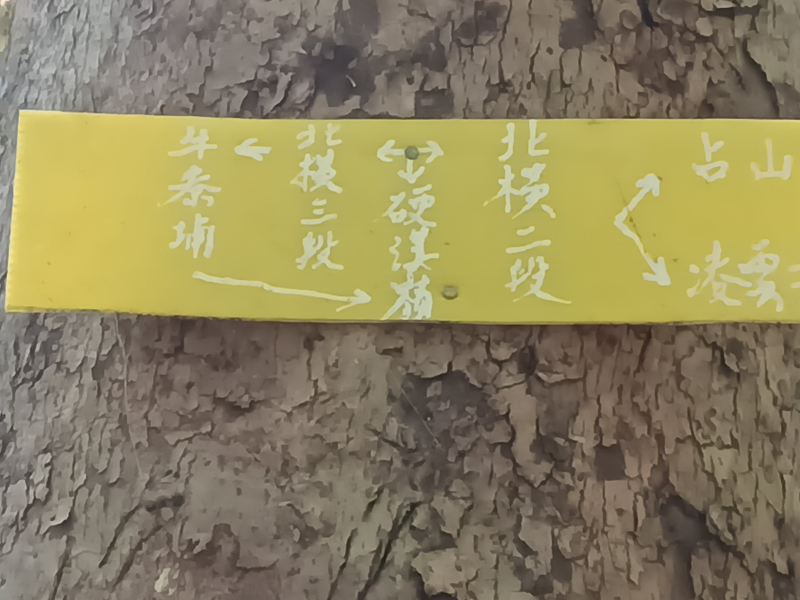 牛泰埔
北横三段
硬漢嶺
北横二段
占山
凌雲